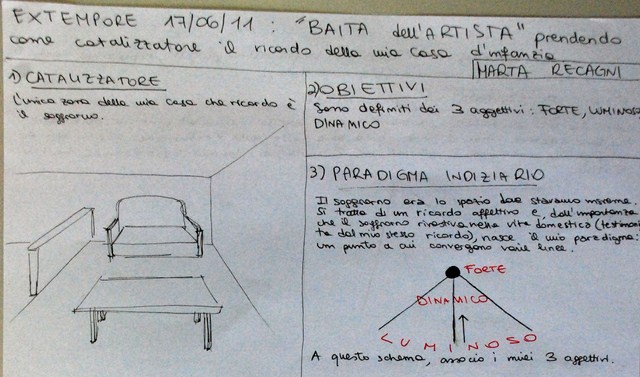 EXTEMPORE 17/06/11 : "BAITA dell'ARTISTA" prendendo
come catalizzatore il ricordo della mia casa d'infanzia
MARTA RECAGNI
1) CATALIZZATORE
L'unica zona della mia casa che ricordo è
il soggiorno.
2) OBIETTIVI
Sono definiti dai 3 aggettivi: FORTE, LUMINOSO
DINAMICO
3) PARADIGMA INDIZIARIO
Il soggiorno era lo spazio dove stavamo insieme.
Si tratta di un ricordo affettivo e, dall'importanza
che il soggiorno rivestiva nella vita domestica (testimonia
ta dal mio stesso ricordo), nasce il mio paradigma:
un punto a cui convergono varie linee.
FORTE
DINAMICO
LUMINOSO
A questo schema, associo i miei 3 aggettivi.